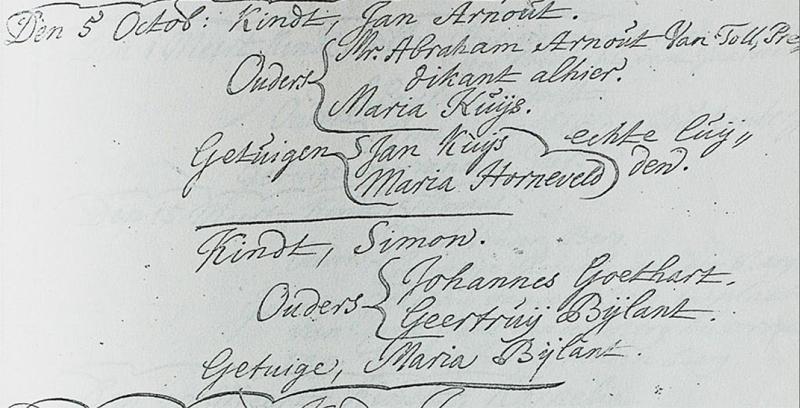 Den 5 Octob: Kindt, Jan Arnout.
Mr. Abraham Arnout Van Toll, Pre
Ouders dikant alhier.
Maria Kuijs.
Getuigen Jan Kuijs echte luij„
Maria Horneveld den.
Kindt, Simon.
Johannes Goethart.
Ouders
Geertruij Bijlant.
Getuige, Maria Bijlant.